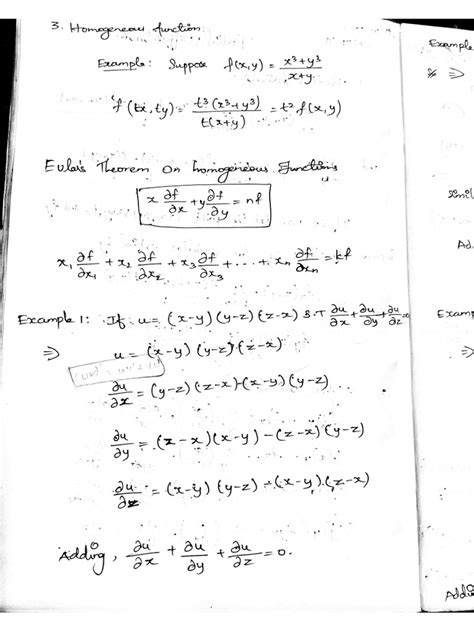 3. Homogeneous function
Example: Suppose f(x,y) = x³+y³ / x+y
f(tx, ty) = t³(x³+y³) / t(x+y) = t² f(x,y)
Euler's Theorem on homogeneous Functions
x ∂f/∂x + y ∂f/∂y = nf
x₁ ∂f/∂x₁ + x₂ ∂f/∂x₂ + x₃ ∂f/∂x₃ + ... + xₙ ∂f/∂xₙ = kf
Example 1: If u = (x-y)(y-z)(z-x) S.T ∂u/∂x + ∂u/∂y + ∂u/∂z =
⇒ u = (x-y)(y-z)(z-x)
∂u/∂x = (y-z)(z-x) - (x-y)(y-z)
∂u/∂y = (z-x)(x-y) - (z-x)(y-z)
∂u/∂z = (x-y)(y-z) - (x-y)(z-x)
Adding, ∂u/∂x + ∂u/∂y + ∂u/∂z = 0.
Example
⇒
Ad
Examp
Addi